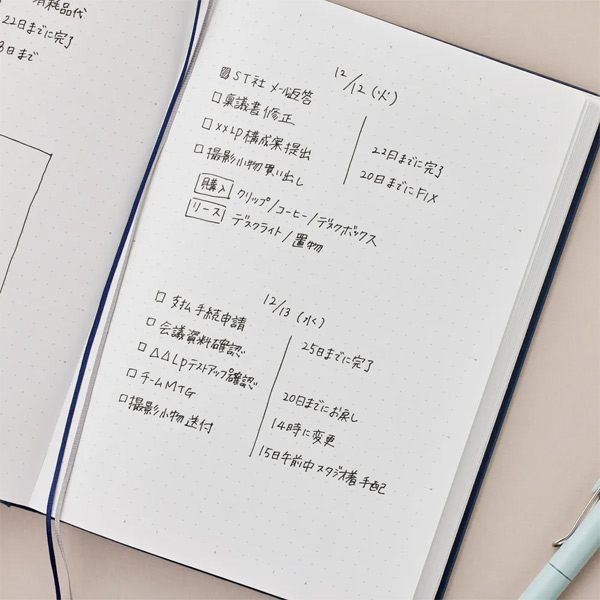 消耗品代
22日までに完了
日まで
12/12(火)
ST社 メール返答
稟議書修正
22日までに完了
××LP構成案提出
20日までにFIX
撮影小物買い出し
購入 クリップ/コーヒー/デスクボックス
リース デスクライト/置物
12/13(水)
支払手続申請
25日までに完了
会議資料確認
△△LPテストアップ確認
20日までにお戻し
チームMTG
14時に変更
撮影小物送付
15日午前中スタジオ着手配